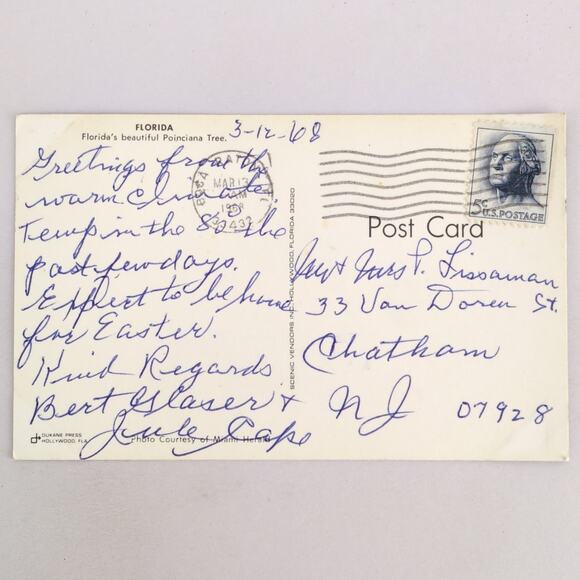 FLORIDA
Florida's beautiful Poinciana Tree.
3-12-68
Greetings from the
warm climate.
Temp in the 80 the
past few days.
Expect to be home
for Easter.
Kind Regards
Bert Glaser &
Jule Cape
DUKANE PRESS
HOLLYWOOD, FLA.
Photo Courtesy of Miami Herald
SCENIC VENDORS INC. HOLLYWOOD, FLORIDA 33020
BOCA RATON, FL
MAR 13
AM
1968
33432
5¢
U.S. POSTAGE
Post Card
Mr & Mrs P. Lissaman
33 Van Doren St.
Chatham
NJ 07928